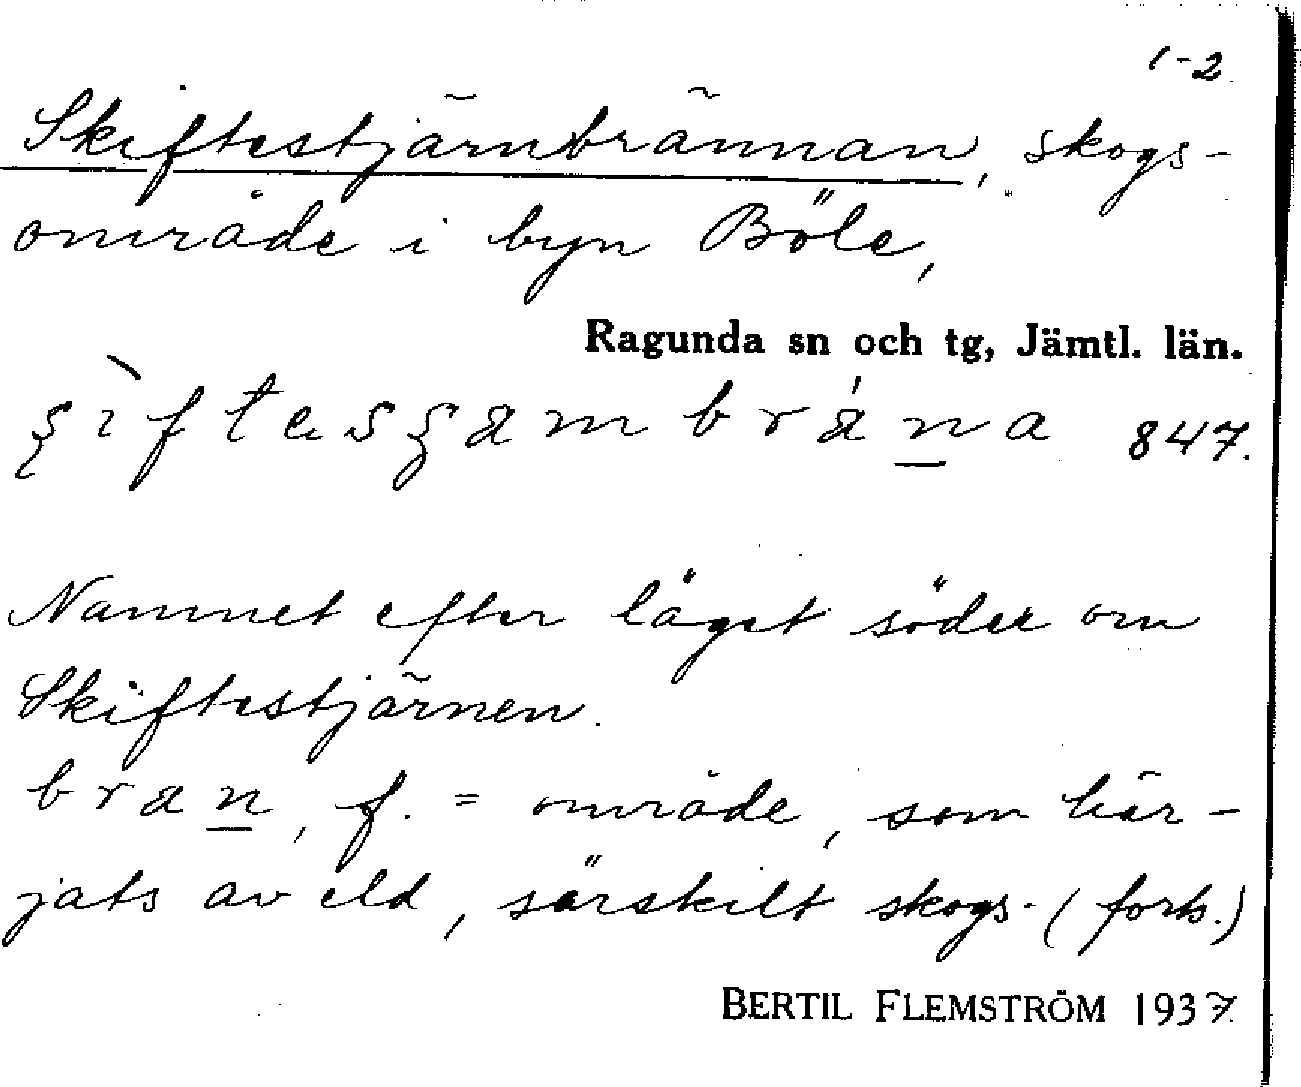 1-2
Skiftestjärnbrännan, skogs-
område i byn Böle,
Ragunda sn och tg, Jämtl. län.
847.
Namnet efter läget söder om
Skiftestjärnen.
bran, f. = område, som här-
jats av eld, särskilt skogs- (forts.)
BERTIL FLEMSTRÖM 1937